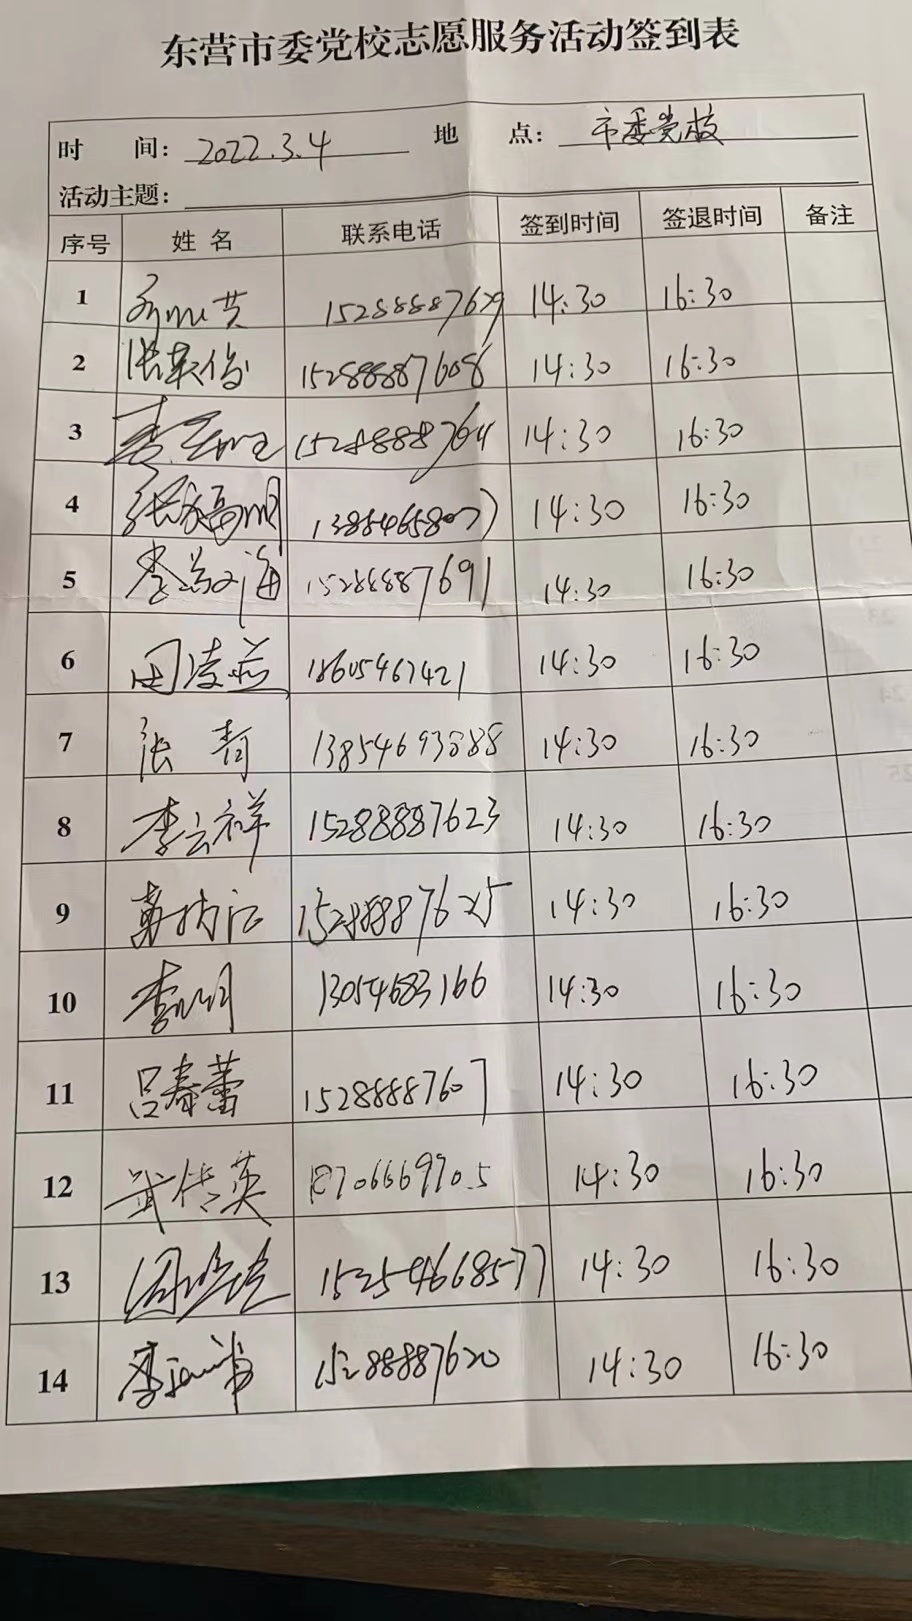 东营市委党校志愿服务活动签到表
时 间: 2022.3.4 地 点: 市委党校
活动主题:
序号 姓 名 联系电话 签到时间 签退时间 备注
1 15288887629 14:30 16:30
2 张英俊 15288887608 14:30 16:30
3 14:30 16:30
4 14:30 16:30
5 15288887691 14:30 16:30
6 田凌燕 18605467421 14:30 16:30
7 张青 13854693888 14:30 16:30
8 李云祥 15288887623 14:30 16:30
9 15288887625 14:30 16:30
10 李明 13054683166 14:30 16:30
11 吕春蕾 15288887607 14:30 16:30
12 武传英 14:30 16:30
13 15254668577 14:30 16:30
14 15288887620 14:30 16:30